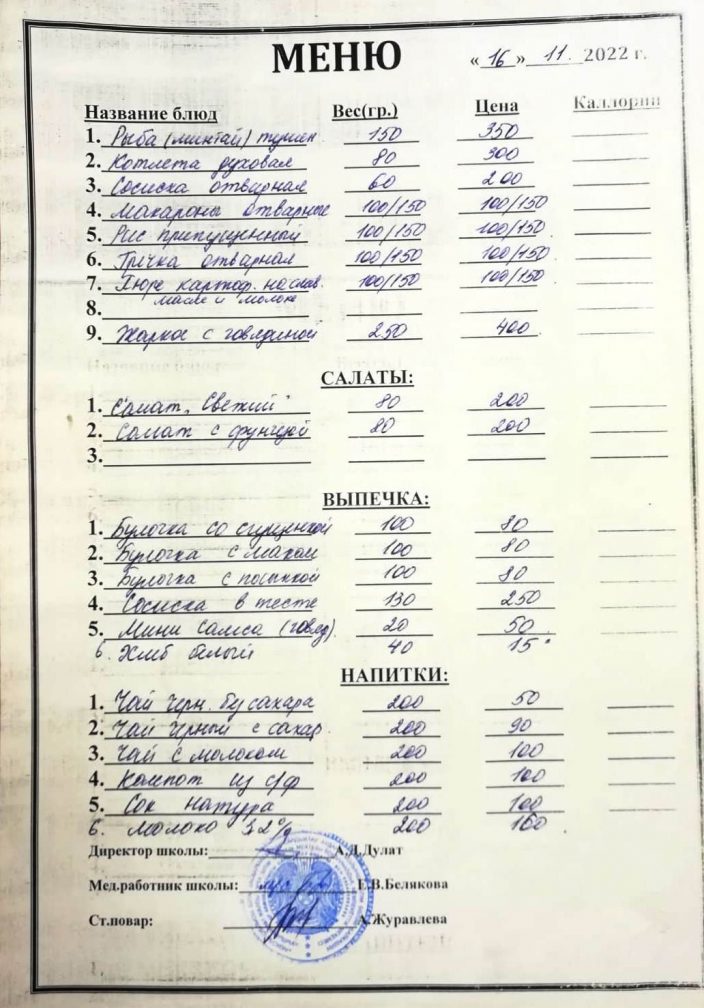 МЕНЮ « 16 » 11. 2022 г.
Название блюд Вес(гр.) Цена Каллории
1. Рыба (минтай) тушен 150 350
2. Котлета духовая 80 300
3. Сосиска отварная 60 200
4. Макароны отварные 100/150 100/150
5. Рис припущенный 100/150 100/150
6. Гречка отварная 100/150 100/150
7. Пюре картоф. на слив. 100/150 100/150
масле и молоке
8.
9. Жаркое с говядиной 250 400
САЛАТЫ:
1. Салат „Свежий" 80 200
2. Салат с фунчозой 80 200
3.
ВЫПЕЧКА:
1. Булочка со сгущенкой 100 80
2. Булочка с маком 100 80
3. Булочка с посыпкой 100 80
4. Сосиска в тесте 130 250
5. Мини самса (говяд). 20 50
6. Хлеб белый 40 15
НАПИТКИ:
1. Чай черн. без сахара 200 50
2. Чай черный с сахар. 200 90
3. Чай с молоком 200 100
4. Компот из с/ф 200 100
5. Сок натура 200 100
6. Молоко 3.2% 200 160
Директор школы: А.Д.Дулат
Мед.работник школы: Е.В.Белякова
Ст.повар: А.Журавлева